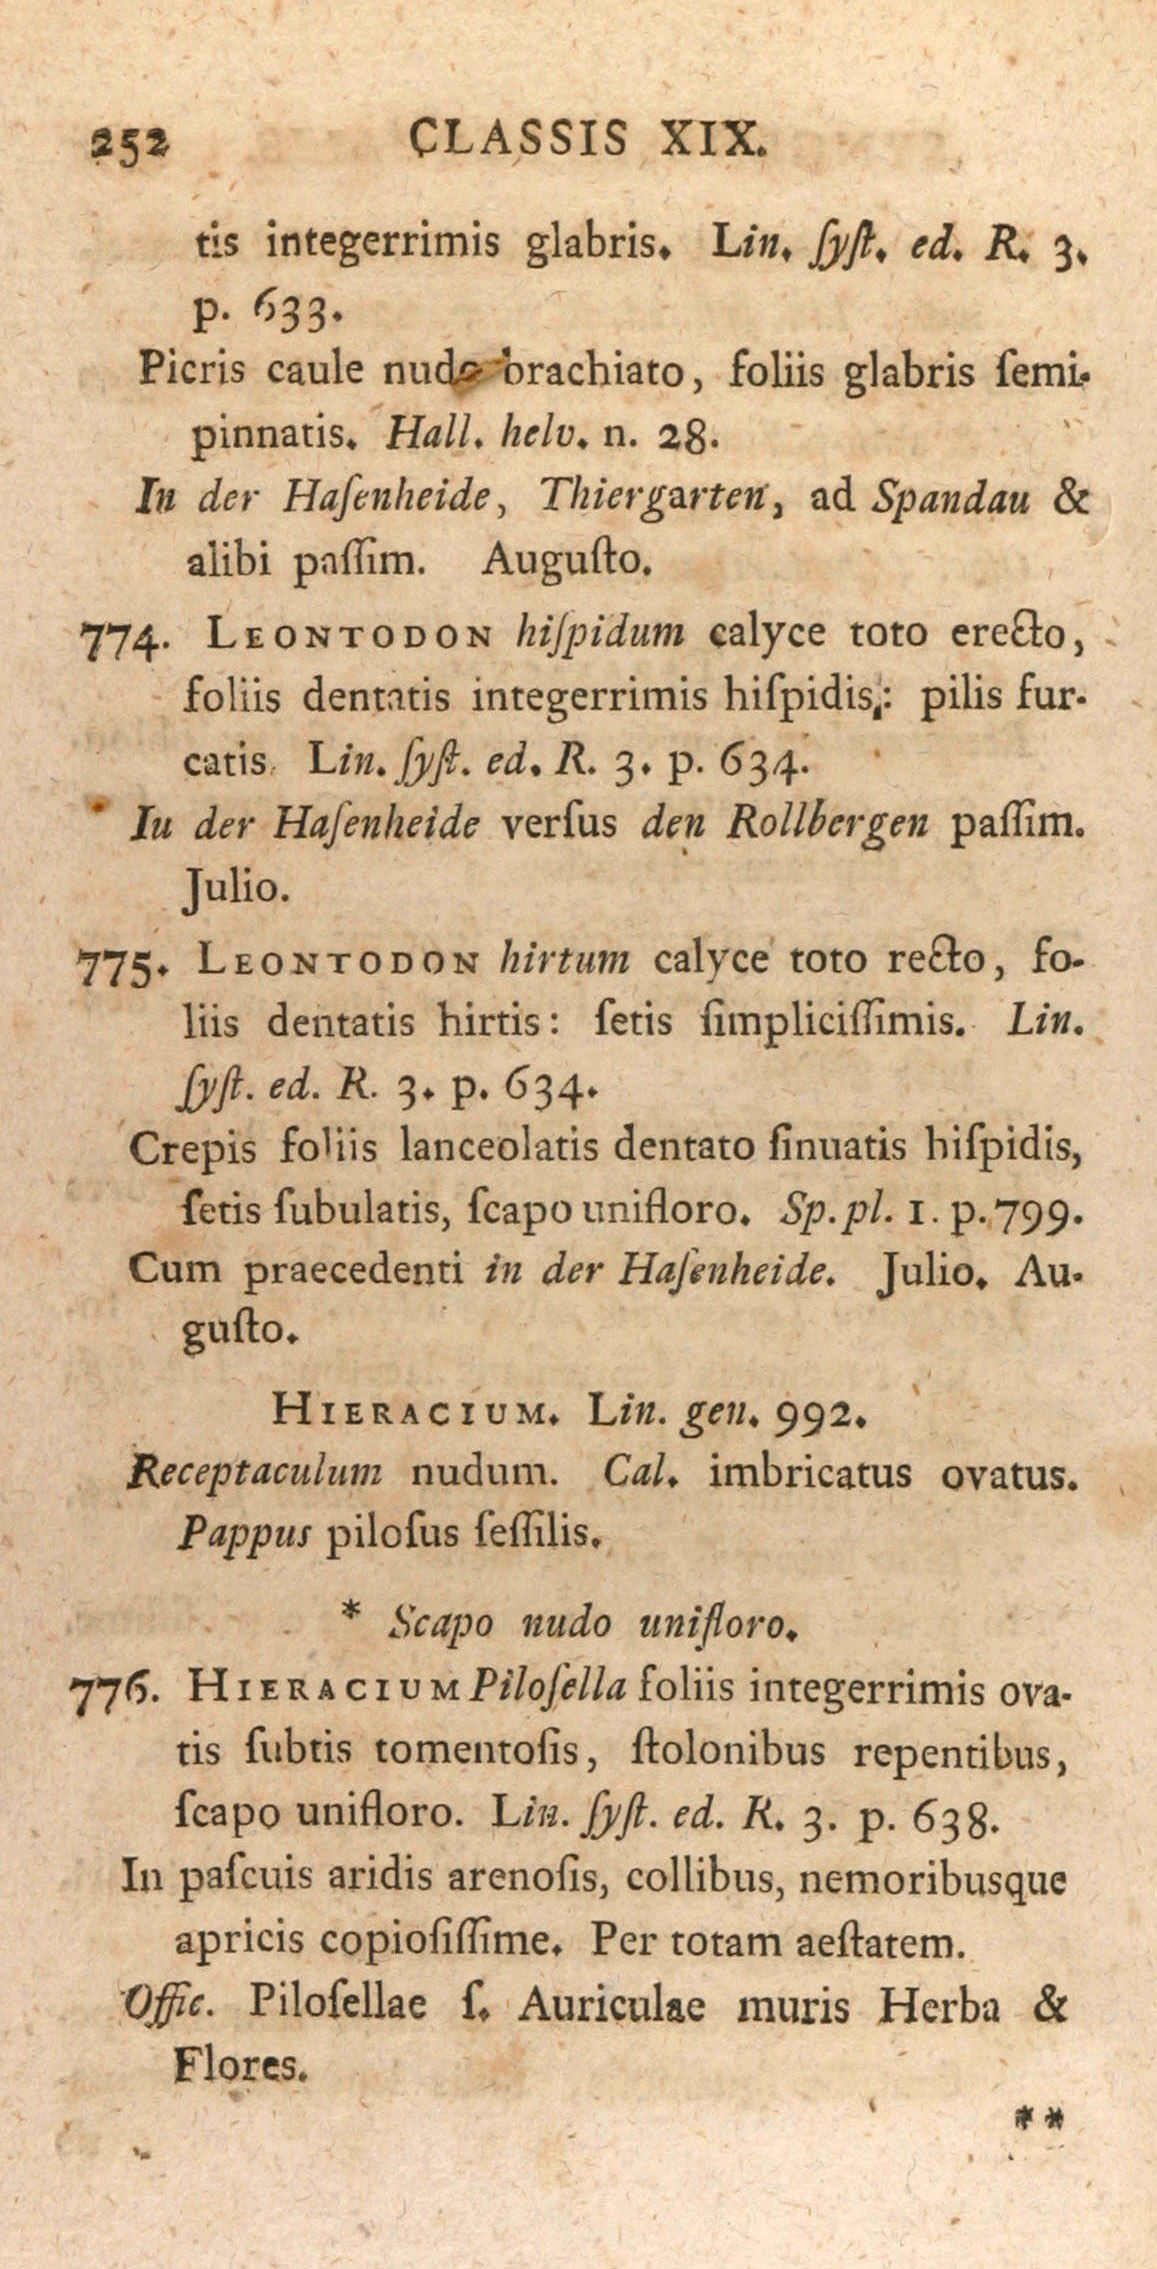 252 CLASSIS XIX.
tis integerrimis glabris. Lin. ſyſt. ed. R. 3.
p. 633.
Picris caule nudo brachiato, foliis glabris ſemi-
pinnatis. Hall. helv. n. 28.
In der Haſenheide, Thiergarten, ad Spandau &
alibi paſſim. Auguſto.
774. LEONTODON hiſpidum calyce toto erecto,
foliis dentatis integerrimis hiſpidis: pilis fur-
catis. Lin. ſyſt. ed. R. 3. p. 634.
Iu der Haſenheide verſus den Rollbergen paſſim.
Julio.
775. LEONTODON hirtum calyce toto recto, fo-
liis dentatis hirtis: ſetis ſimpliciſſimis. Lin.
ſyſt. ed. R. 3. p. 634.
Crepis foliis lanceolatis dentato ſinuatis hiſpidis,
ſetis ſubulatis, ſcapo unifloro. Sp. pl. 1. p. 799.
Cum praecedenti in der Haſenheide. Julio. Au-
guſto.
HIERACIUM. Lin. gen. 992.
Receptaculum nudum. Cal. imbricatus ovatus.
Pappus piloſus ſeſſilis.
* Scapo nudo unifloro.
776. HIERACIUM Piloſella foliis integerrimis ova-
tis ſubtis tomentoſis, ſtolonibus repentibus,
ſcapo unifloro. Lin. ſyſt. ed. R. 3. p. 638.
In paſcuis aridis arenoſis, collibus, nemoribusque
apricis copioſiſſime. Per totam aeſtatem.
Offic. Piloſellae ſ. Auriculae muris Herba &
Flores.
**